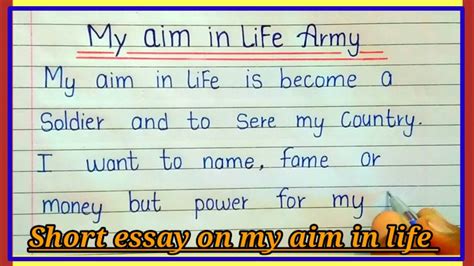 My aim in Life Army
My aim in Life is become a
Soldier and to Sere my Country.
I want to name, fame or
money but power for my
Short essay on my aim in life